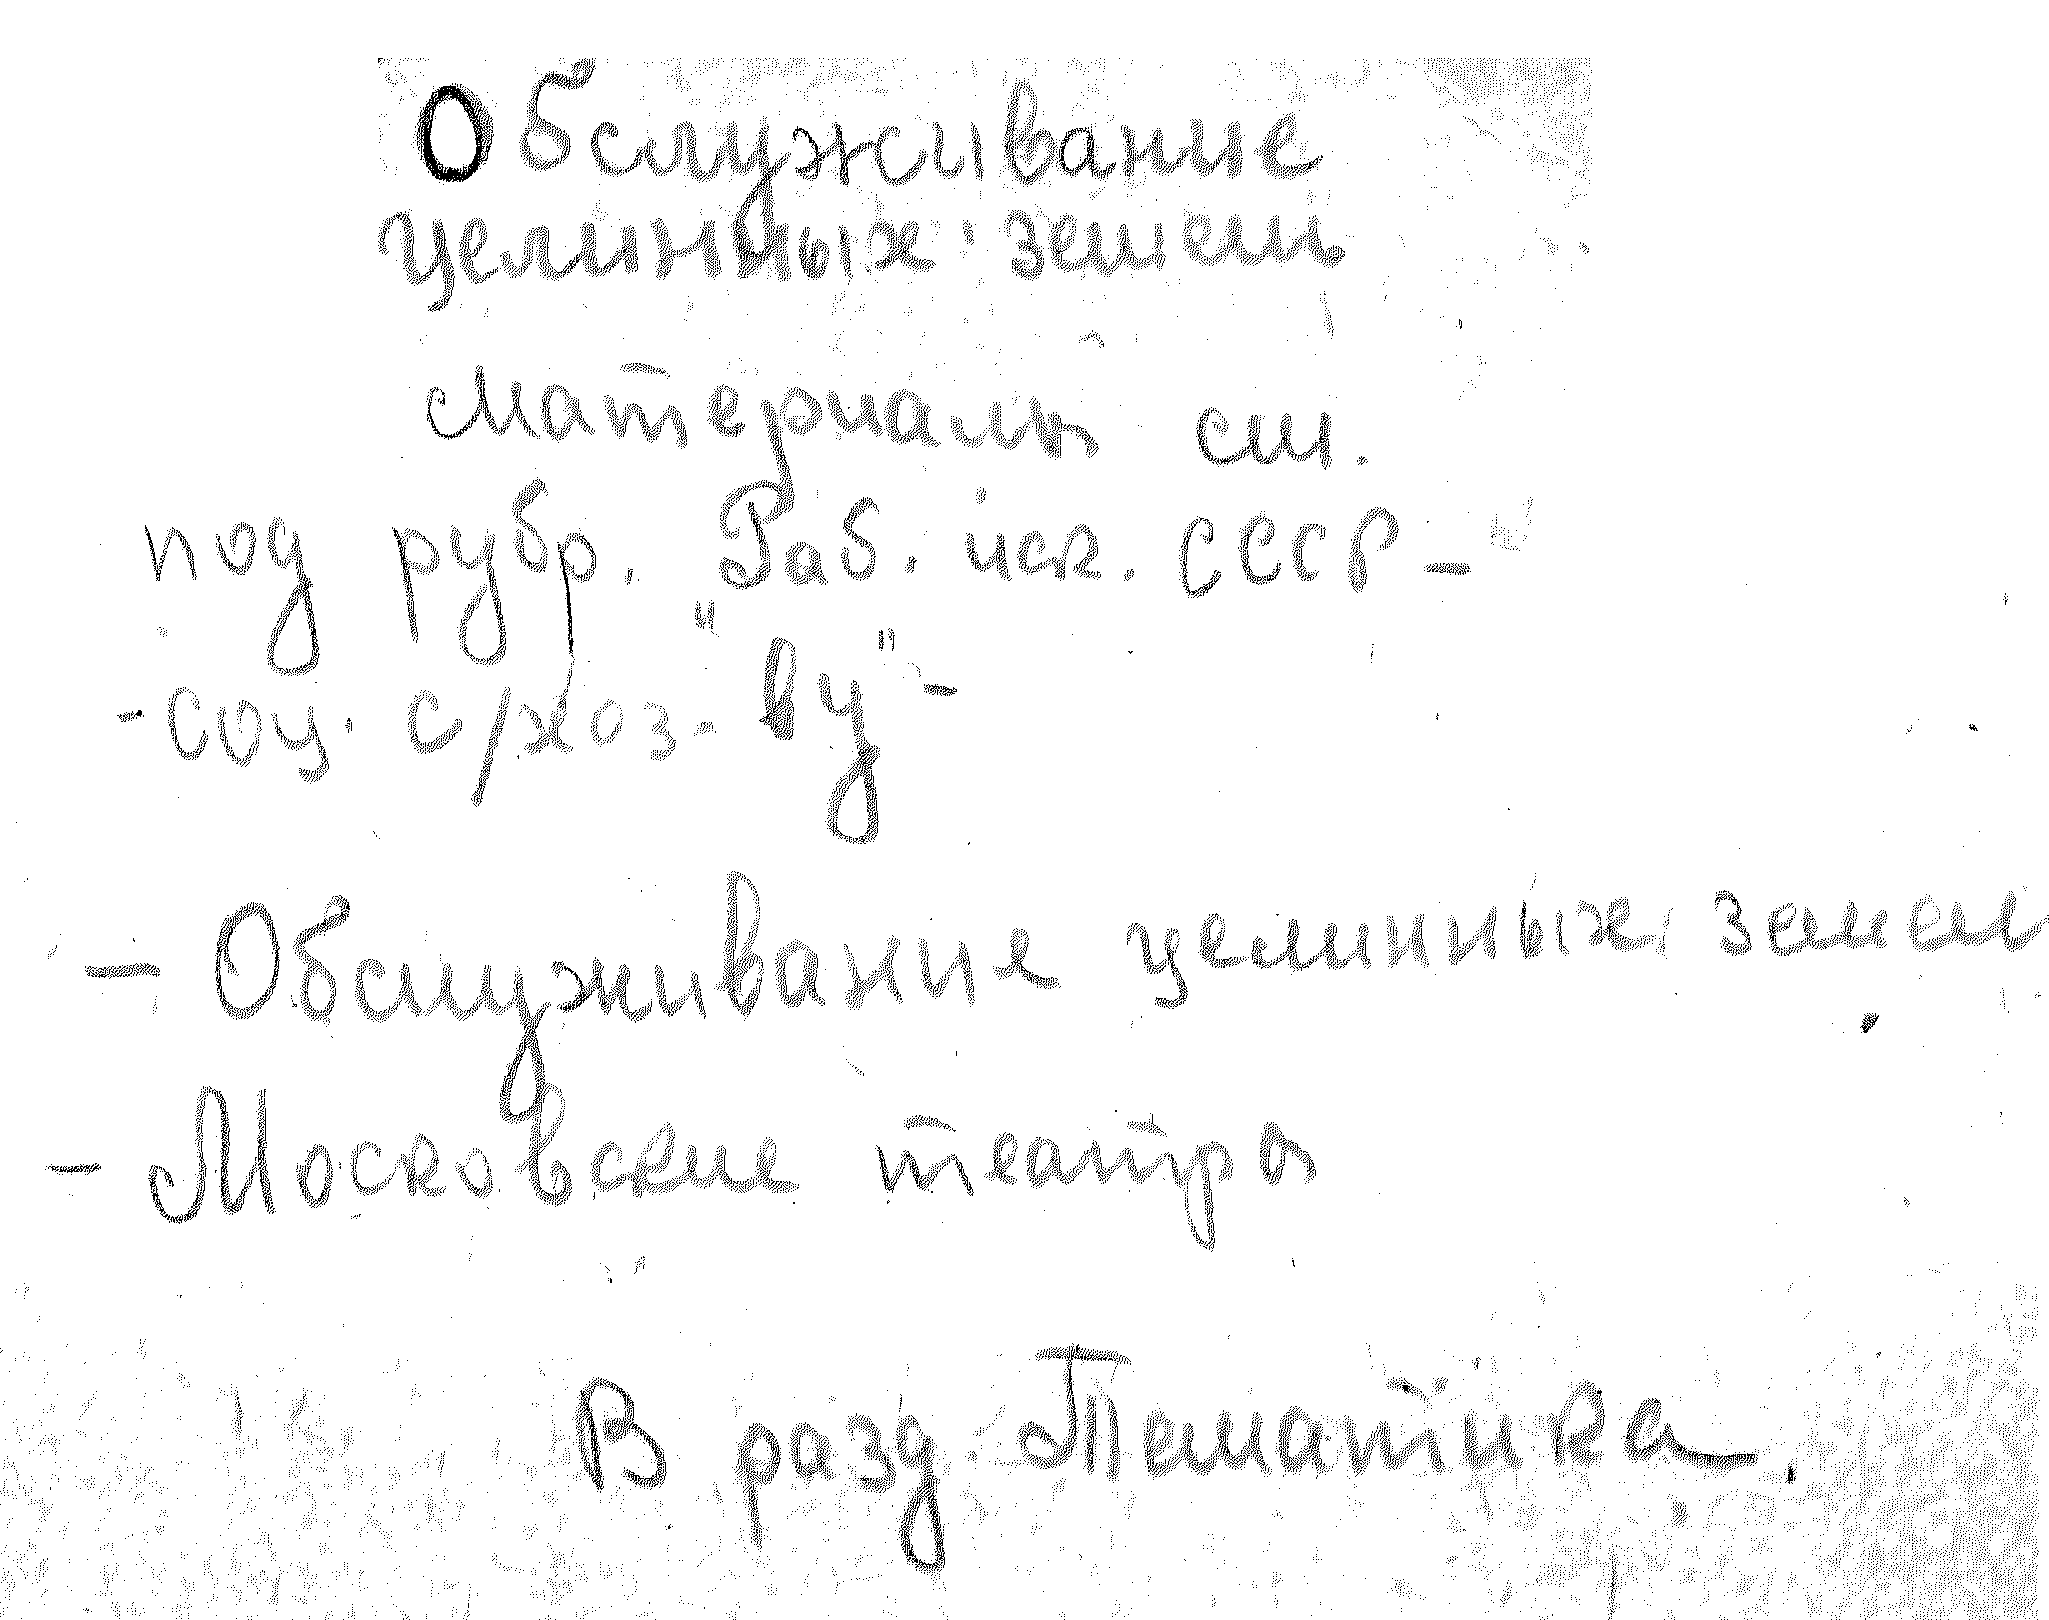 Обслуживание
целинных земель
Материалы см.
под рубр. Раб. иск. СССР –
- соц. с/хоз-"ву" -
– Обслуживание целинных земел
– Московские театры
В разд. Тематика.